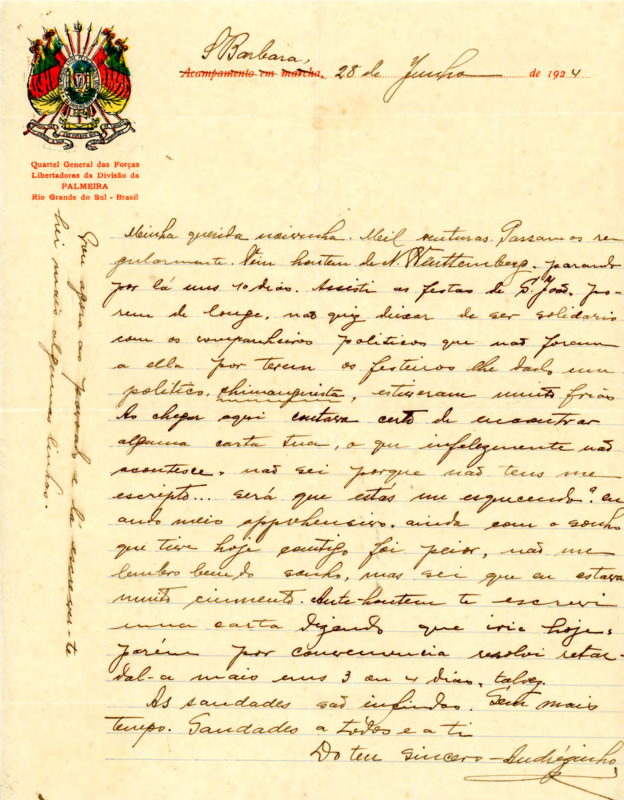 S Barbara,
Acampamento em marcha, 28 de Junho de 1924
Quartel General das Forças
Libertadoras da Divisão da
PALMEIRA
Rio Grande do Sul - Brasil
Minha querida noivinha. Mil venturas. Passamos re
gularmente. Vim hontem de N. Württemberg, parando
por lá uns 10 dias. Assisti as festas de S. João, po-
rem de longe, não quiz deixar de ser solidario
com os companheiros politicos que não foram
a ella por terem os festeiros lhe dado um
politico, chimanguista, estiveram muito frias
Ao chegar aqui contava certo de encontrar
alguma carta tua, o que infelizmente não
acontesce, não sei porque não tens me
escripto... será que estás me esquecendo? eu
ando meio apprehensivo, ainda com o sonho
que tive hoje comtigo foi peior, não me
lembro bem do sonho, mas sei que eu estava
muito ciumento. Ante-hontem te escrevi
uma carta dizendo que iria hoje,
porém por convenuncia resolvi retar-
dal-a mais uns 3 ou 4 dias, talvez.
As saudades são infindas. Sem mais
tempo. Saudades a todos e a ti
Do teu sincero - Andrézinho
Vou agora ao povoado e lá escrever-te
hei mais algumas linhas.